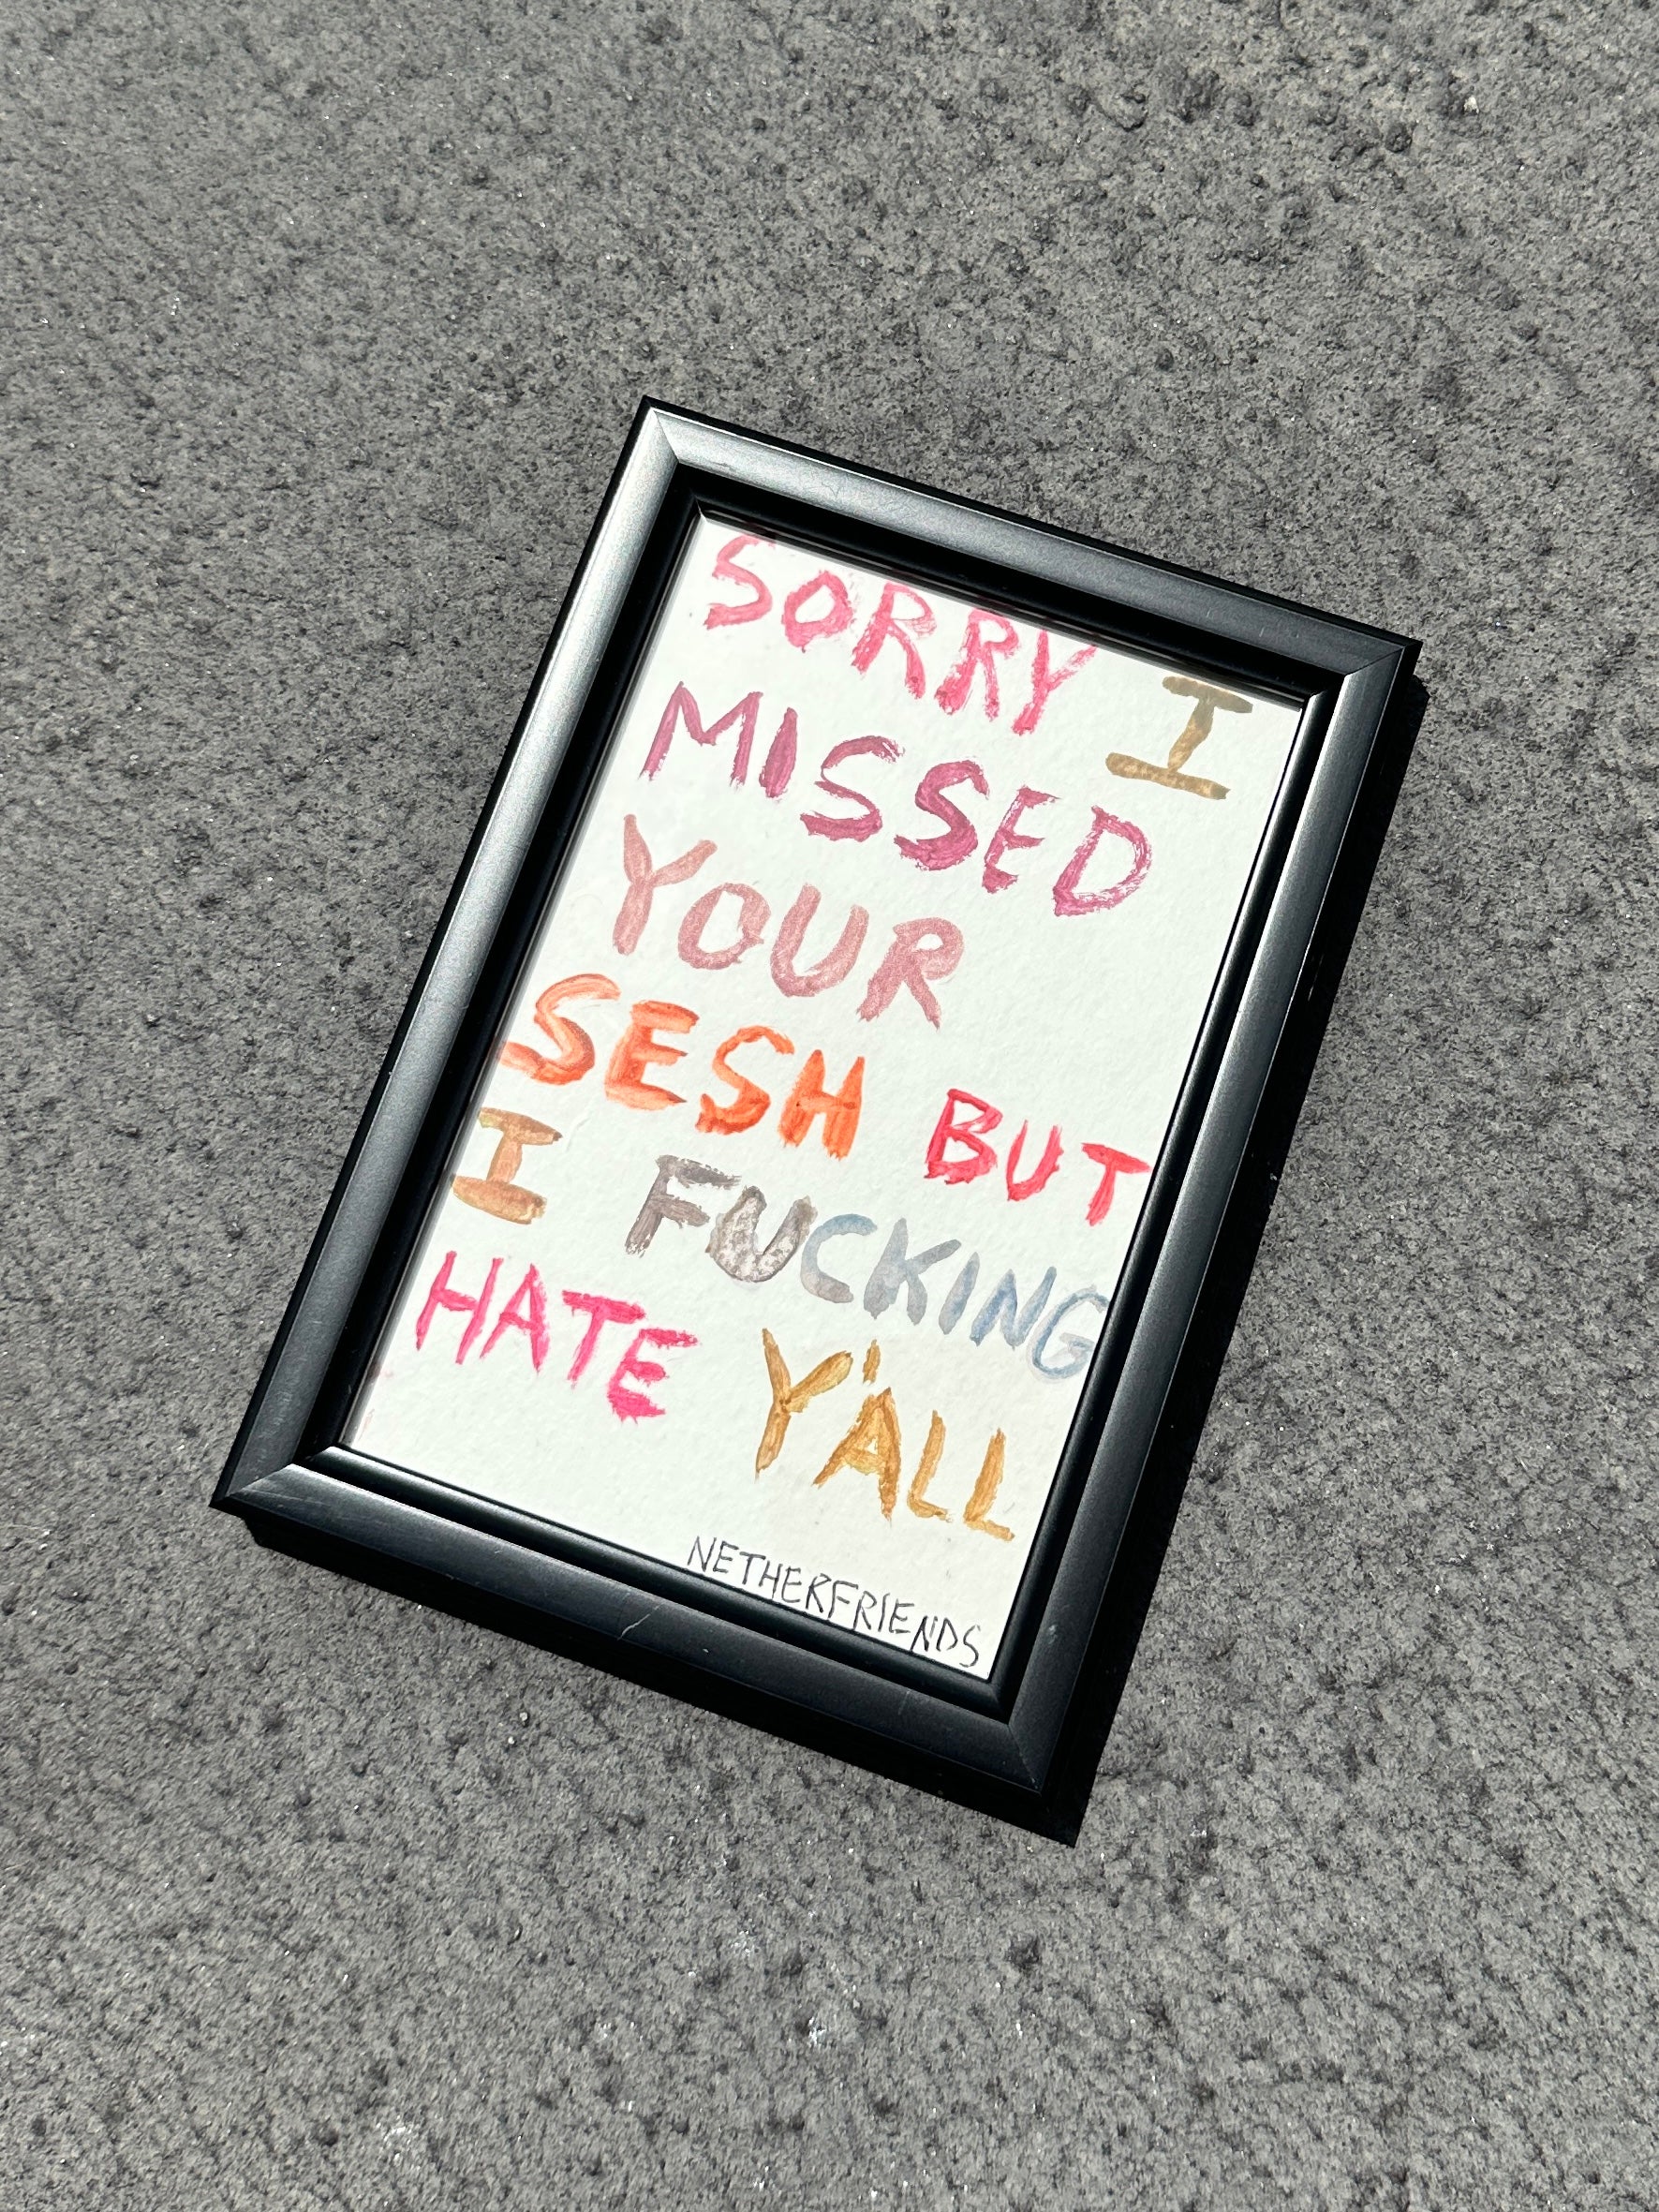 SORRY I
MISSED
YOUR
SESH BUT
I FUCKING
HATE Y'ALL
NETHERFRIENDS